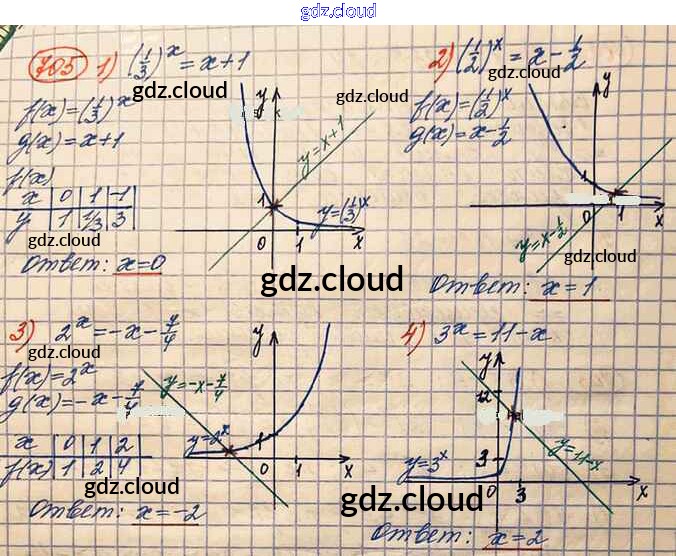 gdz.cloud
705 1) (1/3)^x = x+1
f(x)=(1/3)^x
g(x)=x+1
f(x)
x 0 1 -1
y 1 1/3 3
Ответ: x=0
y
y=x+1
1
y=(1/3)^x
0 1 x
2) (1/2)^x = x - 1/2
f(x)=(1/2)^x
g(x)=x-1/2
y
1
0 1 x
y=x-1/2
Ответ: x=1
3) 2^x = -x - 7/4
f(x)=2^x
g(x)=-x-7/4
x 0 1 2
f(x) 1 2 4
Ответ: x=-2
y
y=-x-7/4
y=2^x
1
0 1 x
4) 3^x = 11-x
y
12
y=3^x
3
y=11-x
0 3 x
Ответ: x=2
gdz.cloud
gdz.cloud
gdz.cloud
gdz.cloud
gdz.cloud
gdz.cloud
gdz.cloud
gdz.cloud
gdz.cloud
gdz.cloud
gdz.cloud
gdz.cloud
gdz.cloud